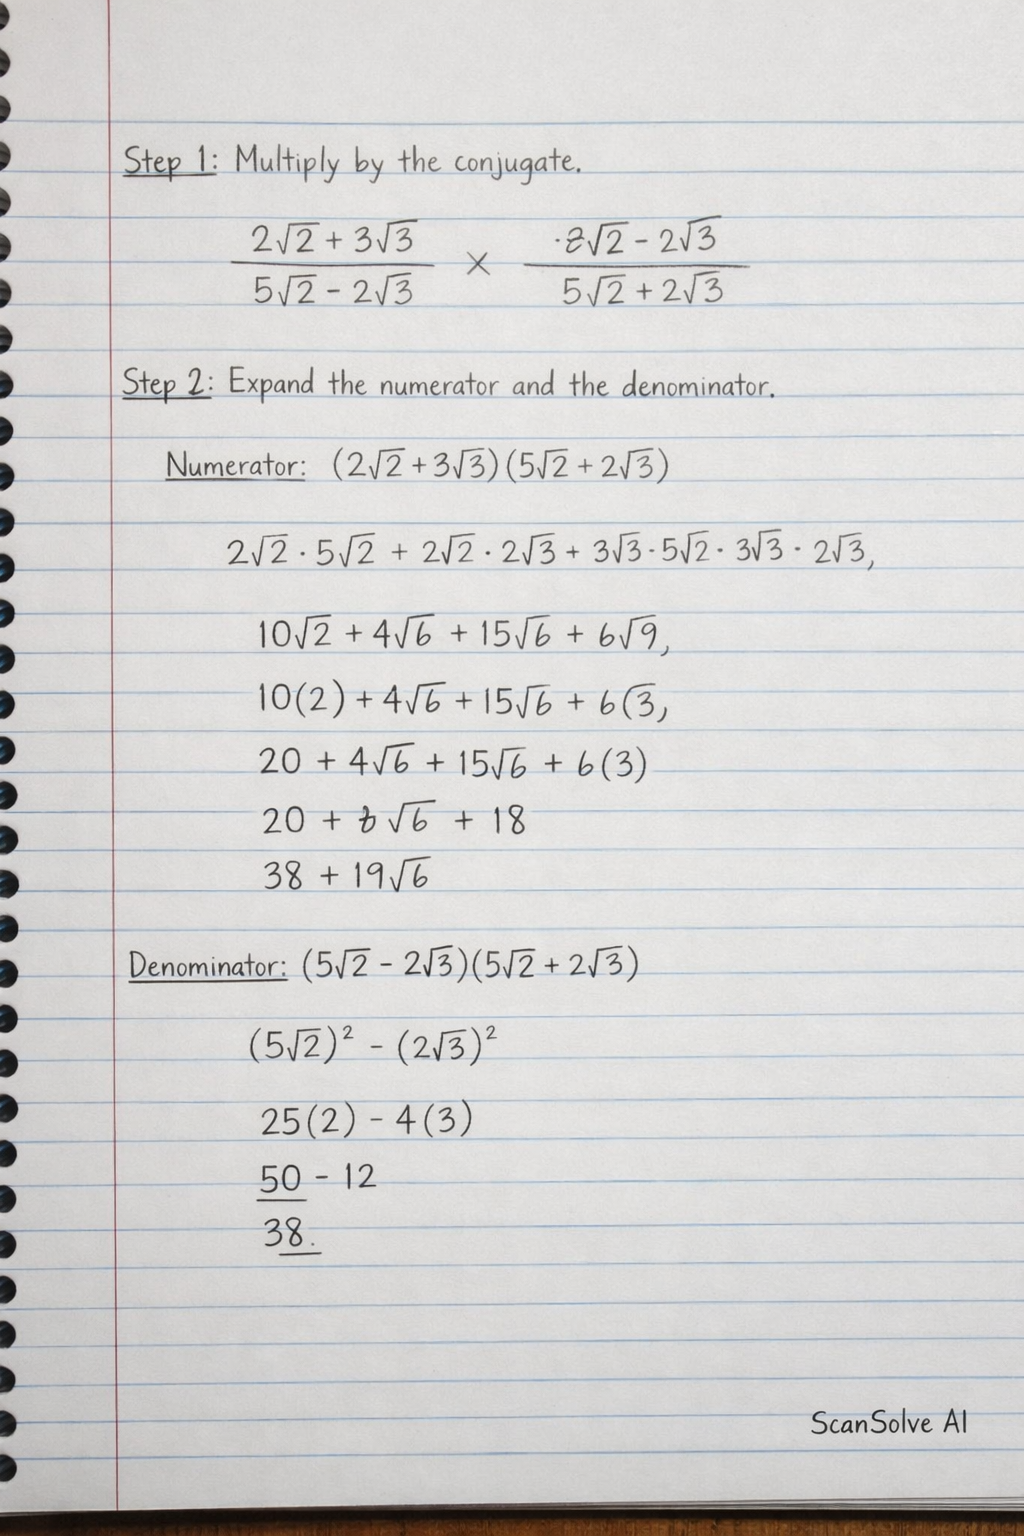 Step 1: Multiply by the conjugate.
2√2 + 3√3 × 2√2 - 2√3
5√2 - 2√3 5√2 + 2√3
Step 2: Expand the numerator and the denominator.
Numerator: (2√2 + 3√3)(5√2 + 2√3)
2√2 · 5√2 + 2√2 · 2√3 + 3√3 · 5√2 · 3√3 · 2√3,
10√2 + 4√6 + 15√6 + 6√9,
10(2) + 4√6 + 15√6 + 6(3,
20 + 4√6 + 15√6 + 6(3)
20 + √6 + 18
38 + 19√6
Denominator: (5√2 - 2√3)(5√2 + 2√3)
(5√2)² - (2√3)²
25(2) - 4(3)
50 - 12
38.
ScanSolve AI